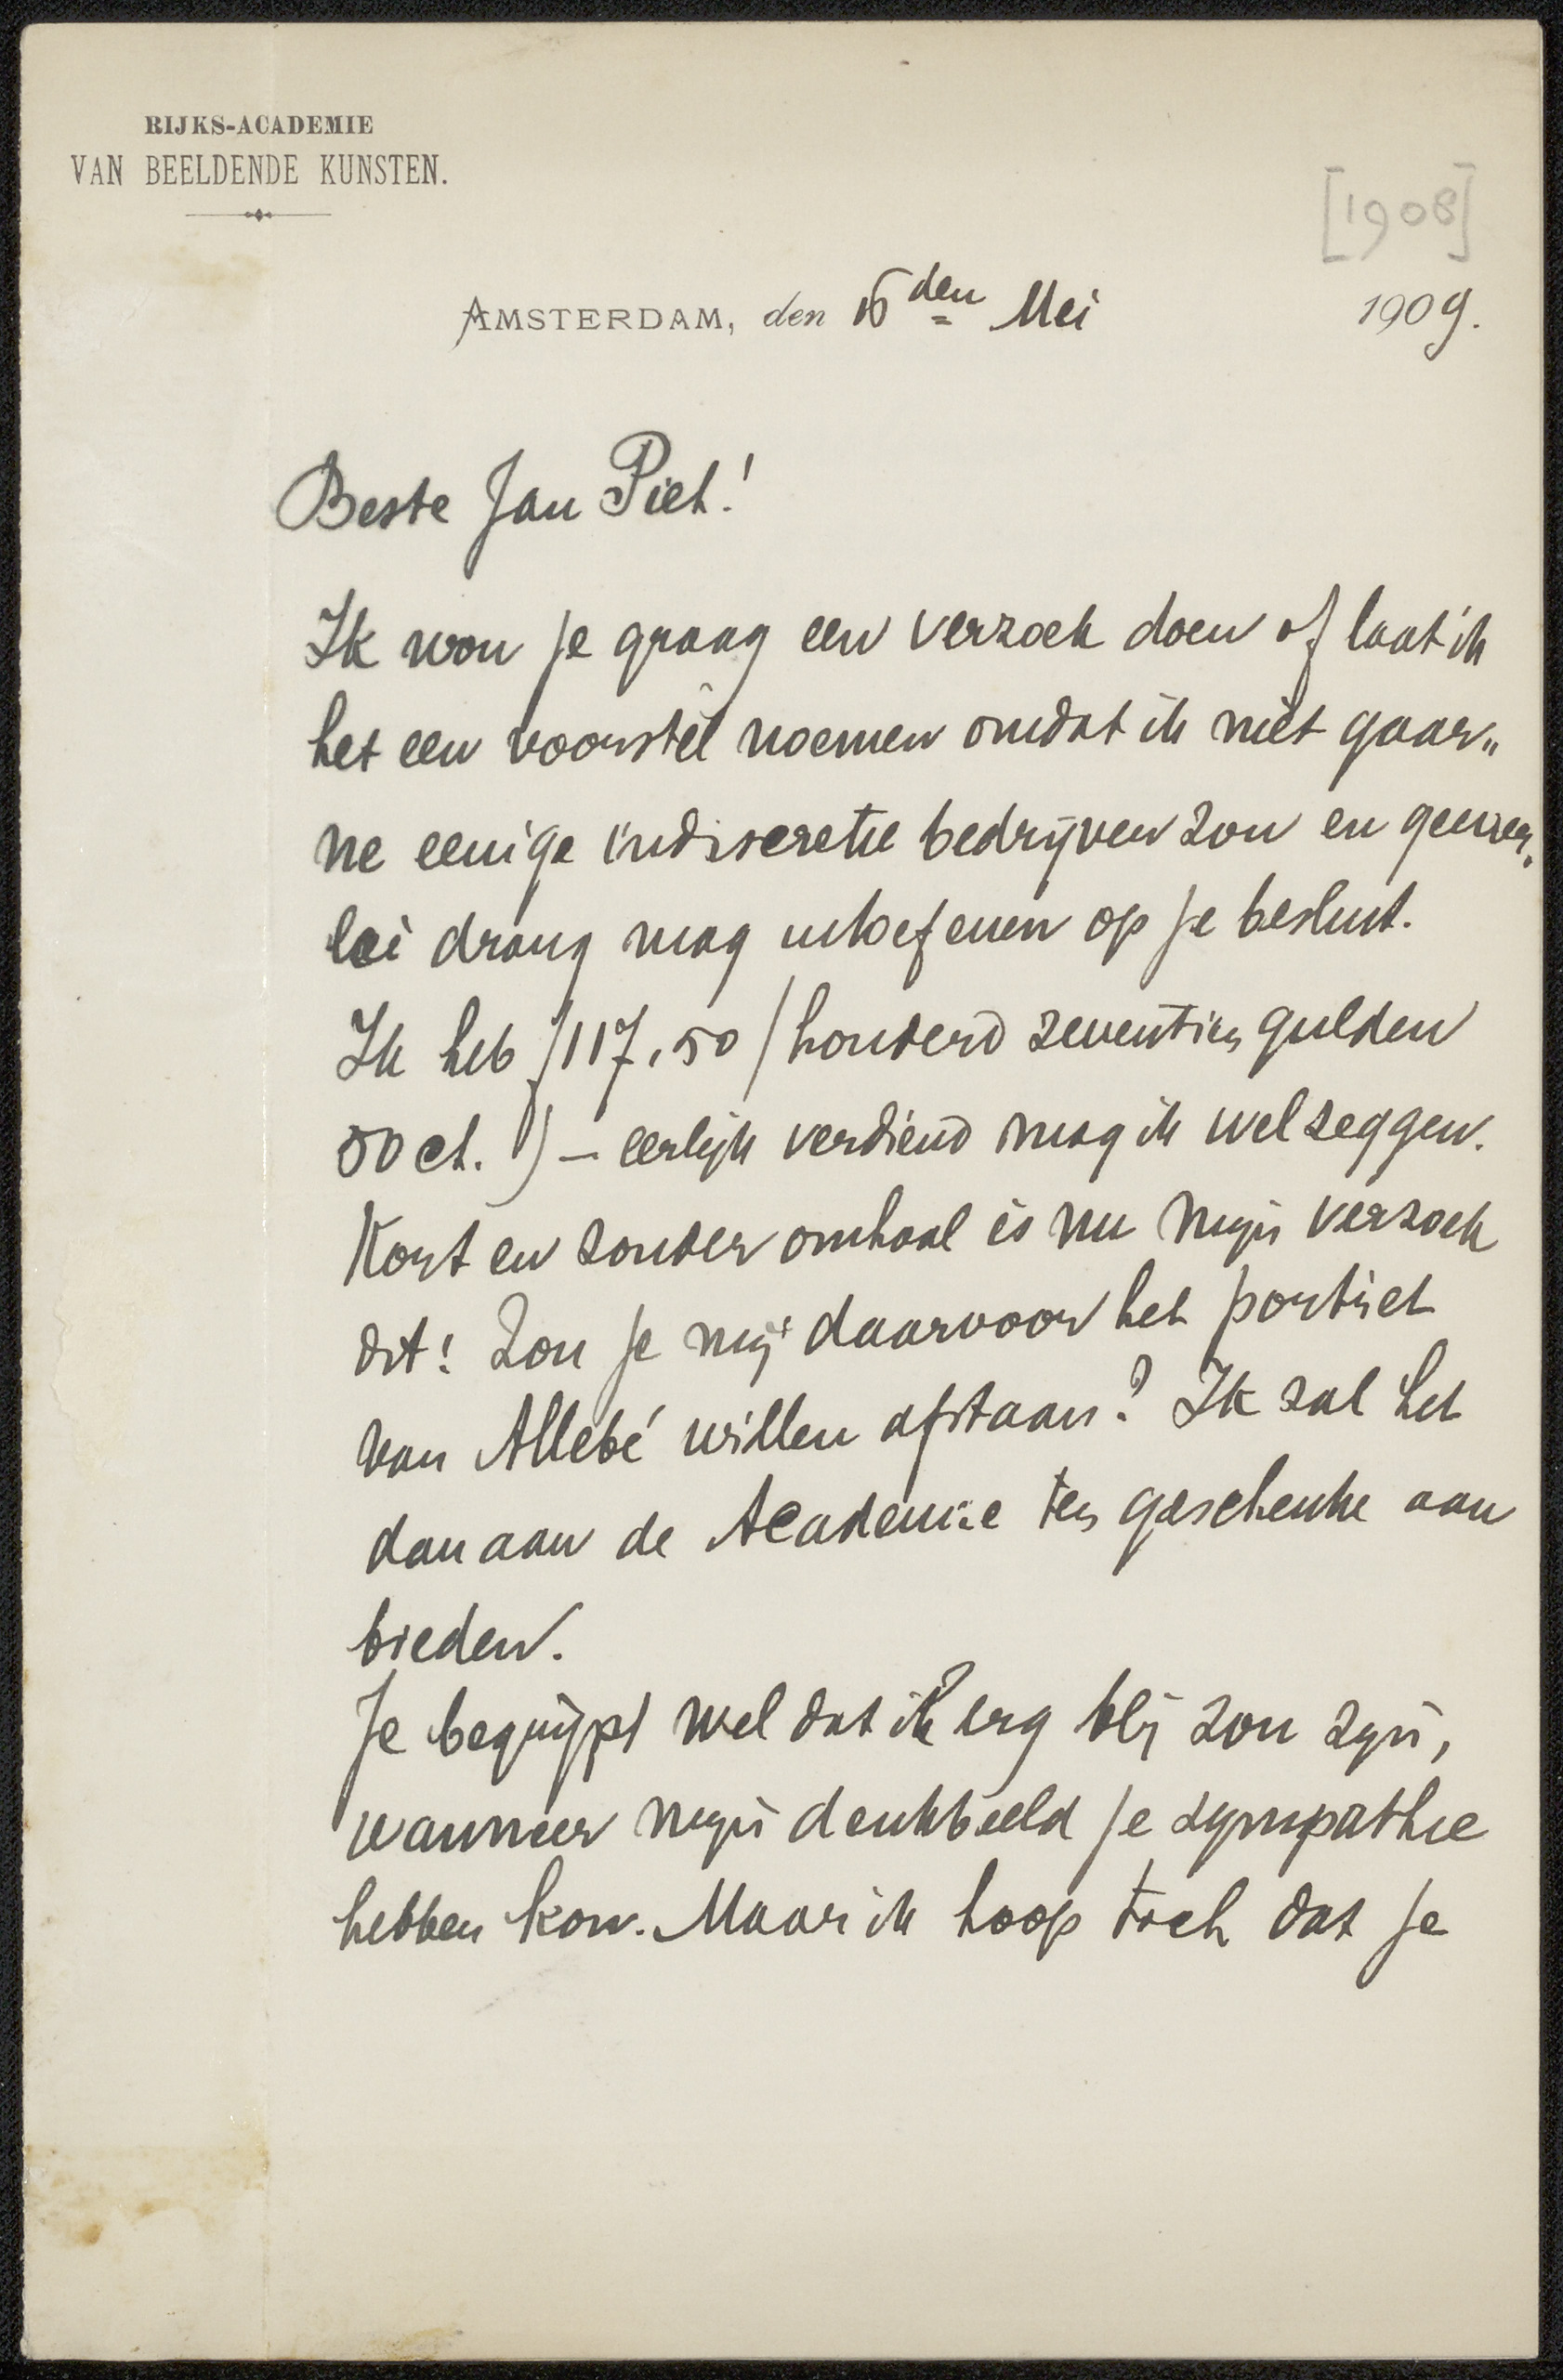 RIJKS-ACADEMIE
VAN BEELDENDE KUNSTEN.
[1908]
AMSTERDAM, den 16den Mei 1909.
Beste Jan Piet!
Ik wou je graag een verzoek doen of laat ik
het een voorstel noemen omdat ik niet gaar„
ne eenige indiscretie bedrijven zou en geener„
lei drang mag uitoefenen op je besluit.
Ik heb f 117,50 (honderd zeventien gulden
50 ct.) – eerlijk verdiend mag ik wel zeggen.
Kort en zonder omhaal is nu mijn verzoek
dit: Zou je mij daarvoor het portret
van Allebé willen afstaan? Ik zal het
dan aan de Academie ten geschenke aan
bieden.
Je begrijpt wel dat ik erg blij zou zijn,
wanneer mijn denkbeeld je sympathie
hebben kon. Maar ik hoop toch dat je